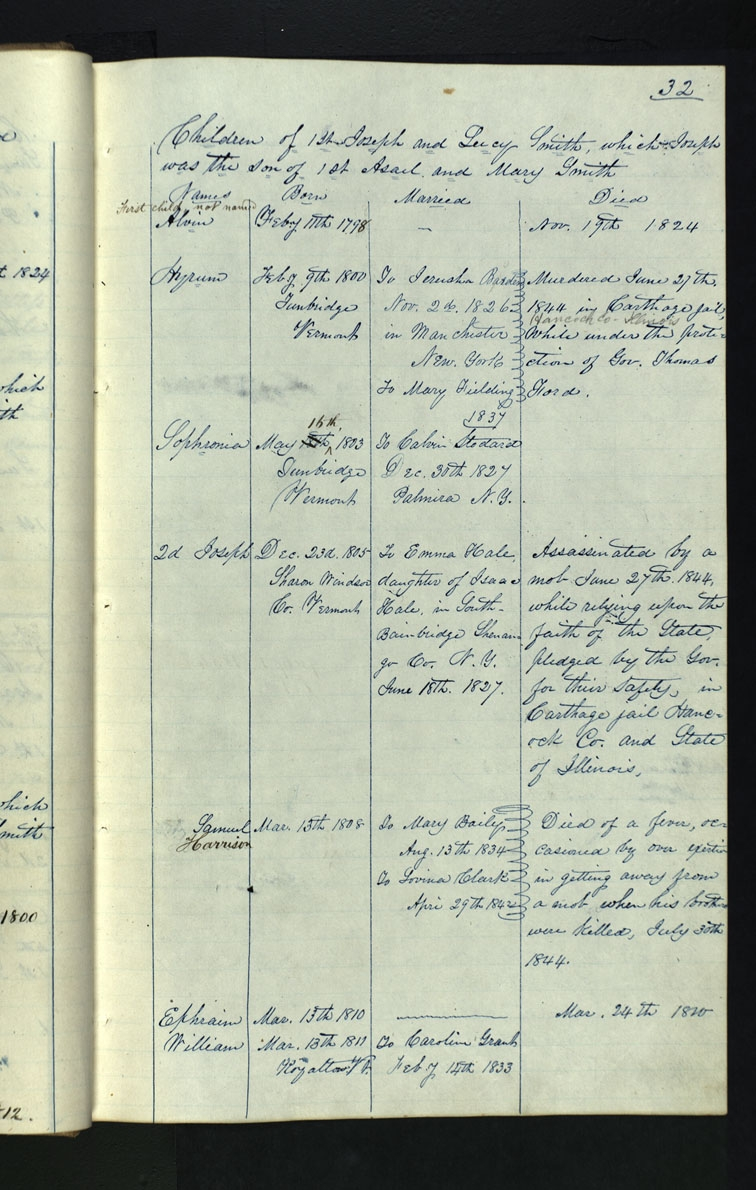 32
Children of 1st Joseph and Lucy Smith, which Joseph
was the son of 1st Asael and Mary Smith
Names Born Married Died
First child not named
Alvin Feby 11th 1798 — Nov. 19th 1824
Hyrum Feby. 9th 1800 To Jerusha Barden Murdered June 27th.
Tunbridge Nov. 2d. 1826 1844 in Carthage jail,
Hancock co. Illinois
Vermont in Manchester While under the prote-
New. York ction of Gov. Thomas
To Mary Fielding Ford.
1837
16th,
Sophronia May 1803 To Calvin Stodard
Tunbridge Dec. 30th 1827
Vermont Palmira N.Y.
2d Joseph Dec. 23d. 1805 To Emma Hale, Assassinated by a
Sharon Windsor daughter of Isaac mob June 27th. 1844,
Co. Vermont Hale, in South- while relying upon the
Bainbridge Shenan- faith of the State,
go Co. N.Y. pledged by the Gov.
June 18th. 1827. for their safety, in
Carthage jail Hanc-
ock Co. and State
of Illinois,
Samuel Mar. 13th 1808 To Mary Baily Died of a fever, oc-
Harrison Aug. 13th 1834 casioned by over exertion
To Lovina Clark in getting away from
Apri 29th 184 a mob when his brothers
were killed, July 30th
1844.
Ephraim Mar. 13th 1810 Mar. 24th 1810
William Mar. 13th 1811 To Caroline Grant
Royalton Vt. Feby 14th 1833
t 1824
which
th
which
mith
1800
12.